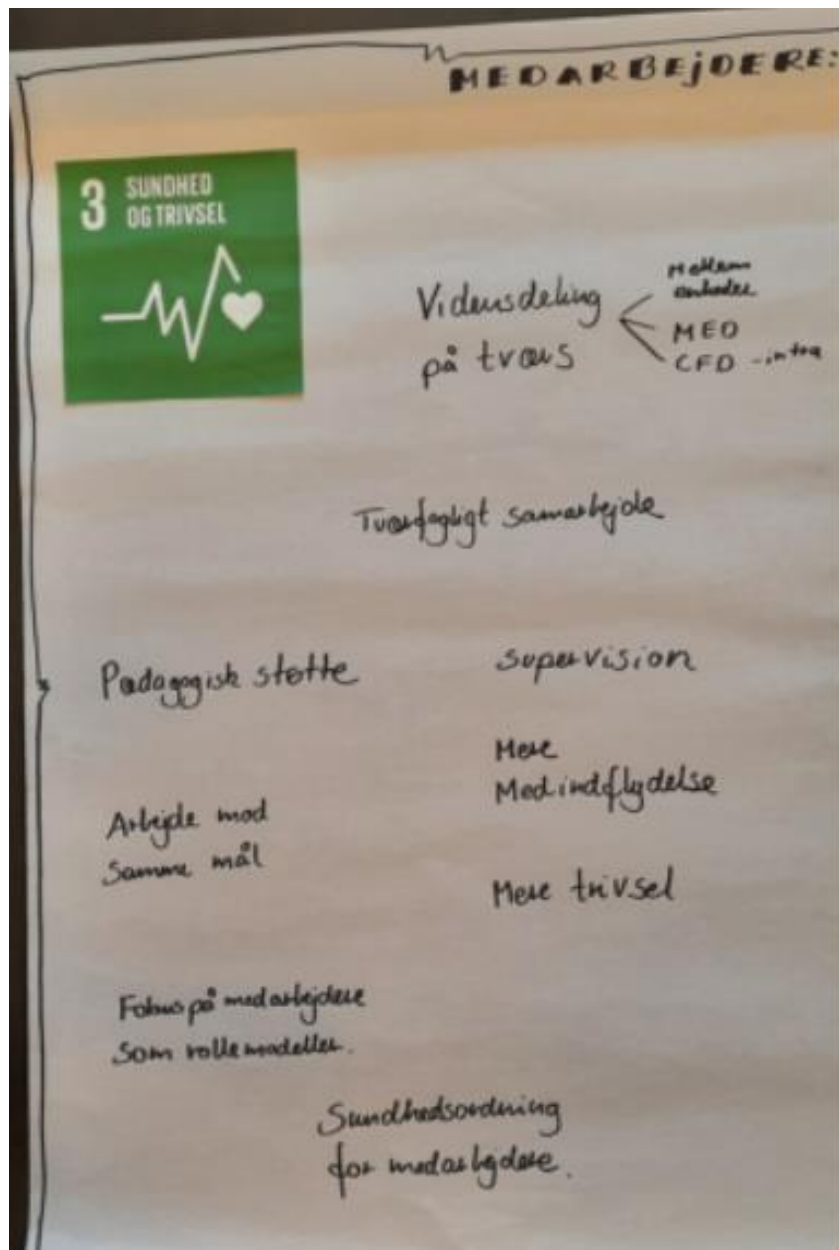 MEDARBEJDERE:
3 SUNDHED
OG TRIVSEL
Vidensdeling
på tværs
Mellem
enheder
MED
CFD - intra
Tværfagligt samarbejde
Pædagogisk støtte
supervision
Mere
Medindflydelse
Arbejde mod
Samme mål
Mere trivsel
Fokus på medarbejdere
Som rollemodeller.
Sundhedsordning
for medarbejdere.